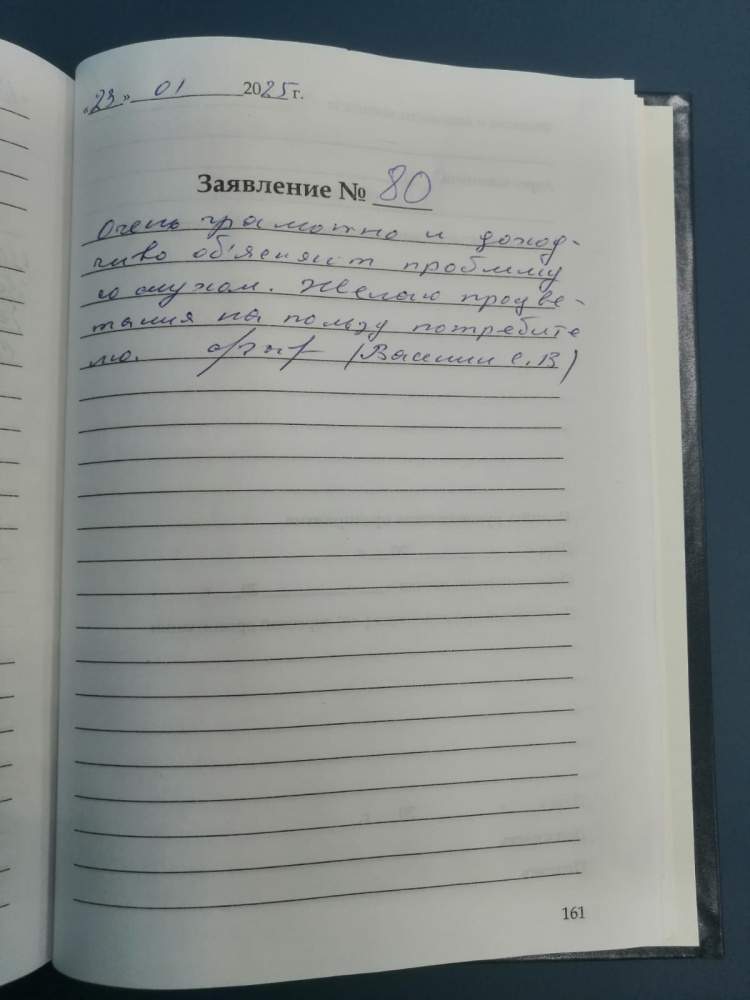 «23» 01 2025 г.
Заявление № 80
Очень грамотно и доход-
чиво об'ясняют проблему
со слухом. Желаю процве-
тания на пользу потребите
лю. (Васенин С.В)
161